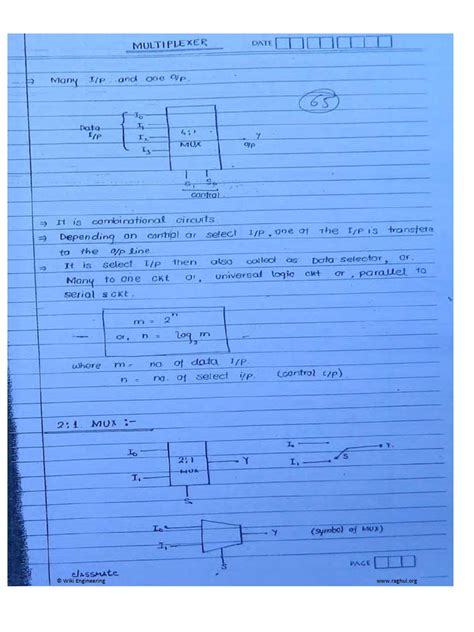 MULTIPLEXER DATE
⇒ Many I/p and one o/p.
65
Data I/p
I₀
I₁
I₂
I₃
4:1 MUX
Y
o/p
S₁ S₀
control
⇒ It is combinational circuits
⇒ Depending on control or select I/p, one of the I/p is transfere
to the o/p line
⇒ It is select I/p then also called as Data selector, or.
Many to one ckt or, universal logic ckt or, parallel to
serial s ckt.
m = 2ⁿ
or, n = log₂ m
where m - no. of data I/p.
n = no. of select i/p. (control i/p)
2:1 MUX :-
I₀
I₁
2:1 MUX
Y
S
I₀
I₁
Y
S
I₀
I₁
Y
S
(symbol of MUX)
PAGE
classmate
© Wiki Engineering www.raghul.org